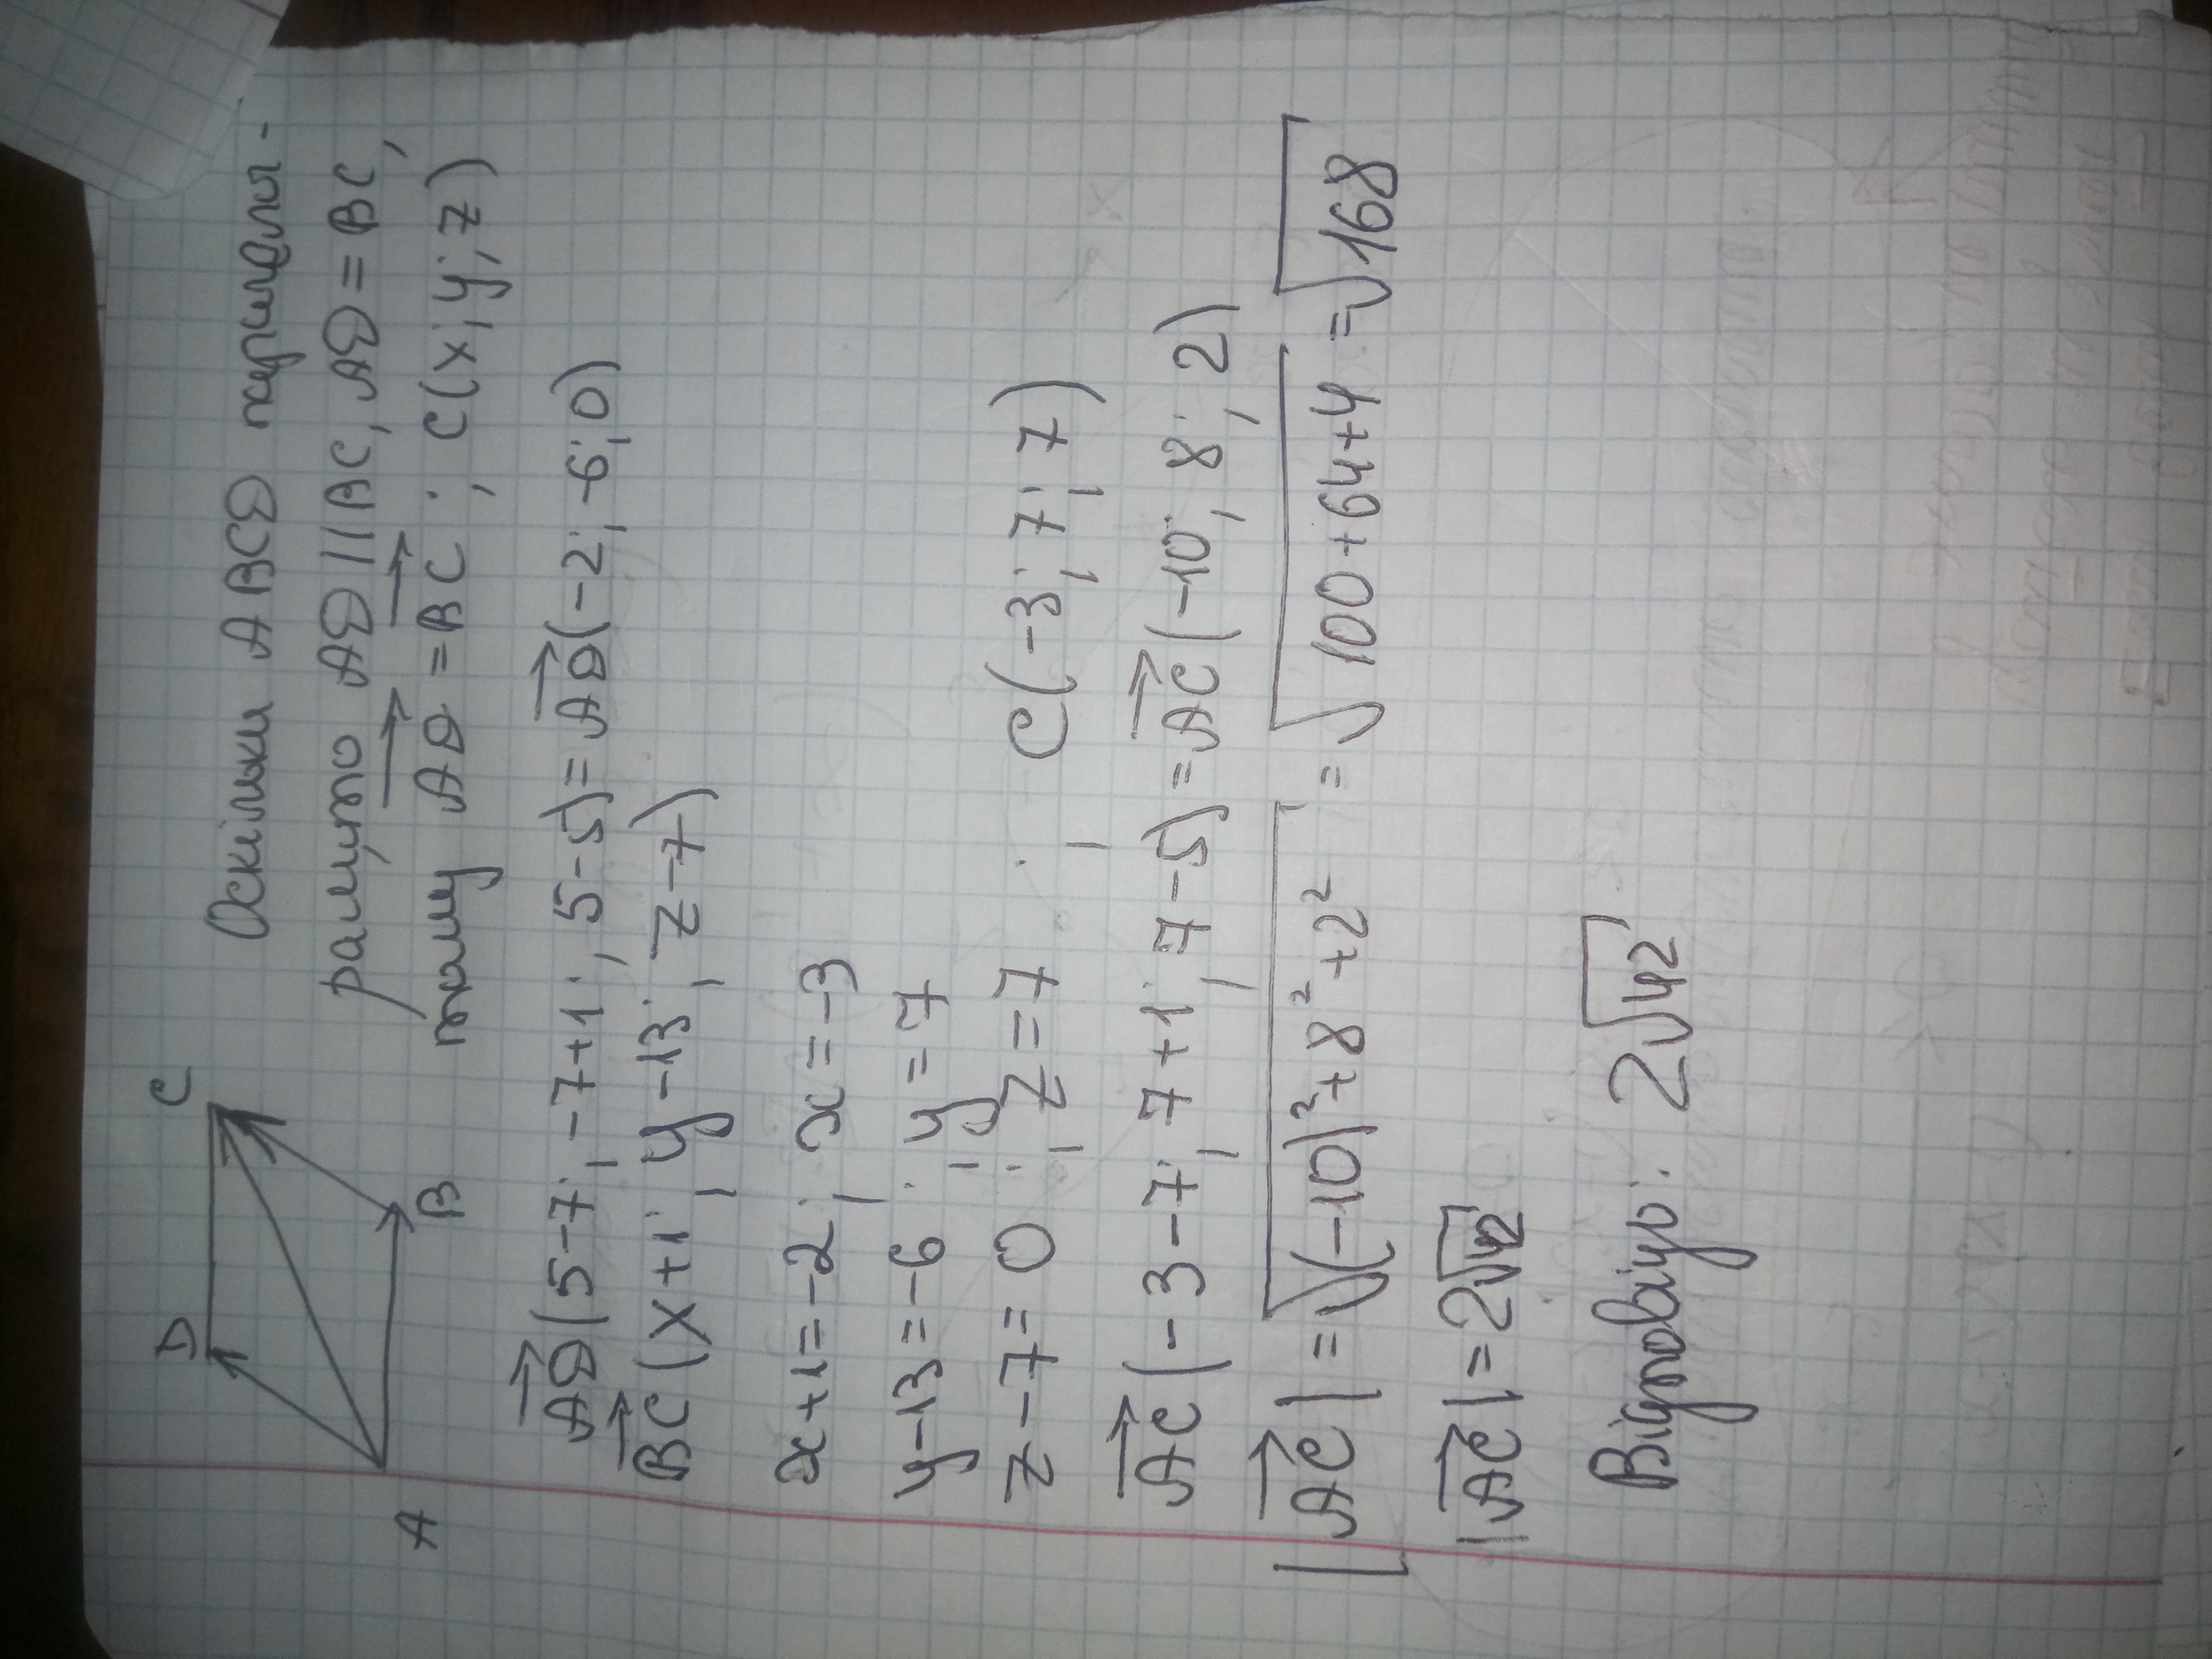 D C
A B
Оскільки ABCD парале-
рам, то AD || BC, AD = BC,
тому AD = BC ; C(x; y; z)
AD(5-7; -7+1; 5-5) = AD(-2; -6; 0)
BC(x+1; y-13; z-7)
x+1=-2; x=-3
y-13=-6; y=7
z-7=0; z=7; C(-3; 7; 7)
AC(-3-7; 7+1; 7-5) = AC(-10; 8; 2)
|AC| = √(-10)²+8²+2² = √100+64+4 = √168
|AC| = 2√42
Відповідь: 2√42